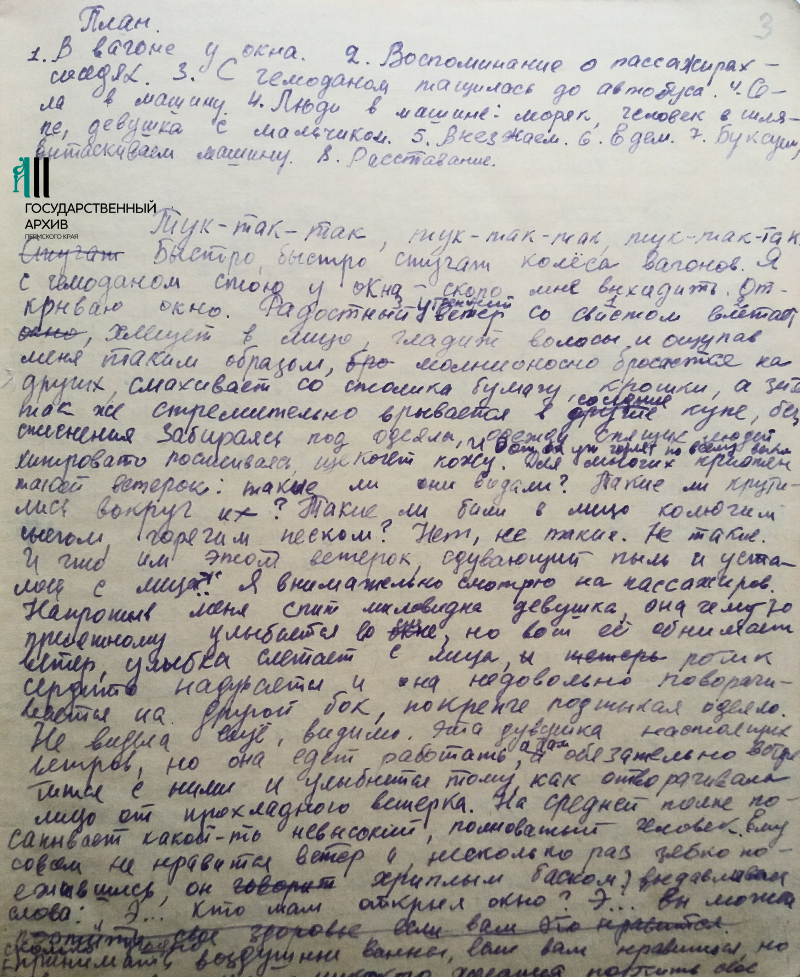 3
План.
1. В вагоне у окна. 2. Воспоминание о пассажирах-
соседях. 3. С чемоданом тащилась до автобуса. 4. Се-
ла в машину 4. Люди в машине: моряк, человек в шля-
пе, девушка с мальчиком. 5. Внезжаем. 6. Едем. 7. Буксуем,
вытаскиваем машину. 8. Расставание.
ГОСУДАРСТВЕННЫЙ
АРХИВ
ПЕРМСКОГО КРАЯ
Тук-так-так, тук-так-так, тук-так-так.
Стучат Быстро, быстро стучат колёса вагонов. Я
с чемоданом стою у окна - скоро мне выхадить. От-
крываю окно. Радостный утренний ветер со свистом влетает
окно, хлещет в лицо, гладит волосы и ощупав
меня таким образом, бро молниеносно бросается на
других, смахивает со столика бумагу, крошки, а зат
так же стремительно врывается в другие соседние купе, без
стеснения забираясь под одеяла, одежду спящих людей и
хитровато посмеиваясь, щекочет кожу. Вот он уж гуляет по всему вагон
Для многих
такой ветерок: такие ли они видали? Такие ли крути-
лись вокруг их? Такие ли били в лицо колючим
снегом, горячим песком? Нет, не такие. Не такие.
И что им этот ветерок, сдувающий пыль и уста-
лость с лица? Я внимательно смотрю на пассажиров.
Напротив меня спит миловидна девушка, она чему-то
приятному улыбается во сне, но вот её обнимает
ветер, улыбка слетает с лица, и теперь ротик
сердито надувается и она недовольно поворачи-
вается на другой бок, покрепче подтыкая одеяло.
Не видела ещё, видимо, эта девушка настоящих
ветров, но она едет работать, а там обязательно встре
тится с ними и улыбнётся тому, как отворачивала
лицо от прохладного ветерка. На средней полке по-
сапывает какой-то невысокий, полноватый человек. Ему
совсем не нравится ветер и, несколько раз зябко по-
ежившись, он говорит хриплым баском, выдавливая
слова: "Э... Кто там открыл окно? Э... вы можете
своё здоровье если вам это нравится.
принимать воздушные ванны, если вам нравится, но